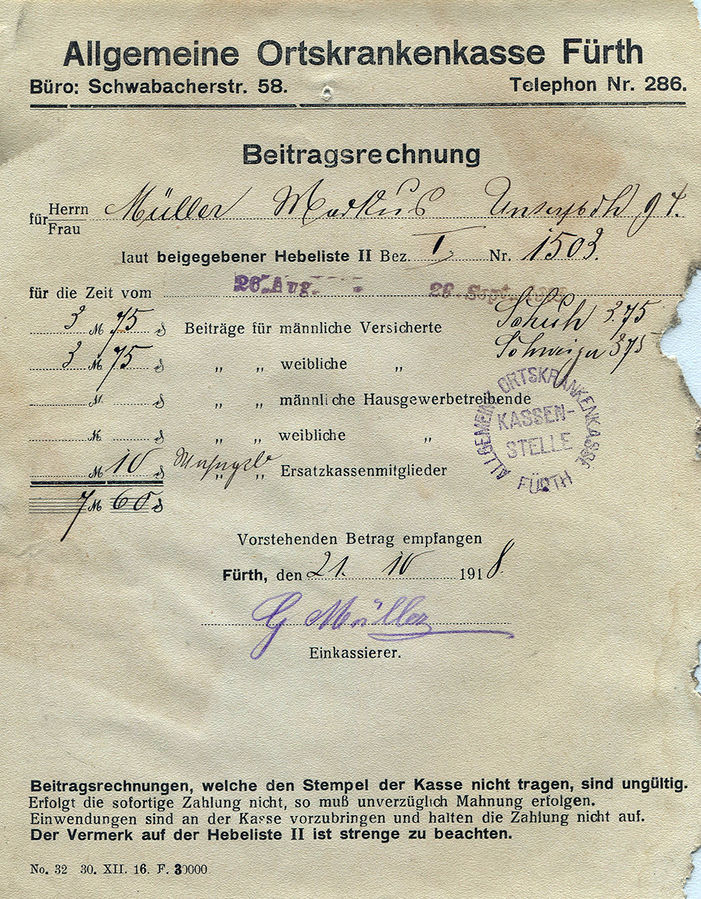 Allgemeine Ortskrankenkasse Fürth
Büro: Schwabacherstr. 58. Telephon Nr. 286.
Beitragsrechnung
für Herrn Frau Müller Markus 94.
laut beigegebener Hebeliste II Bez. I Nr. 1503.
für die Zeit vom 26. Aug. 26. Sept.
3 M 75 ₰ Beiträge für männliche Versicherte Schuh 3.75
3 M 75 ₰ „ „ weibliche „ 3 75
M ₰ „ „ männliche Hausgewerbetreibende
M ₰ „ „ weibliche „
M 10 ₰ „ „ Ersatzkassenmitglieder
7 M 60 ₰
ALLGEMEINE ORTSKRANKENKASSE FÜRTH
KASSEN-
STELLE
Vorstehenden Betrag empfangen
Fürth, den 21. 10 1918.
G Müller
Einkassierer.
Beitragsrechnungen, welche den Stempel der Kasse nicht tragen, sind ungültig.
Erfolgt die sofortige Zahlung nicht, so muß unverzüglich Mahnung erfolgen.
Einwendungen sind an der Kasse vorzubringen und halten die Zahlung nicht auf.
Der Vermerk auf der Hebeliste II ist strenge zu beachten.
No. 32 30. XII. 16. F. 30000